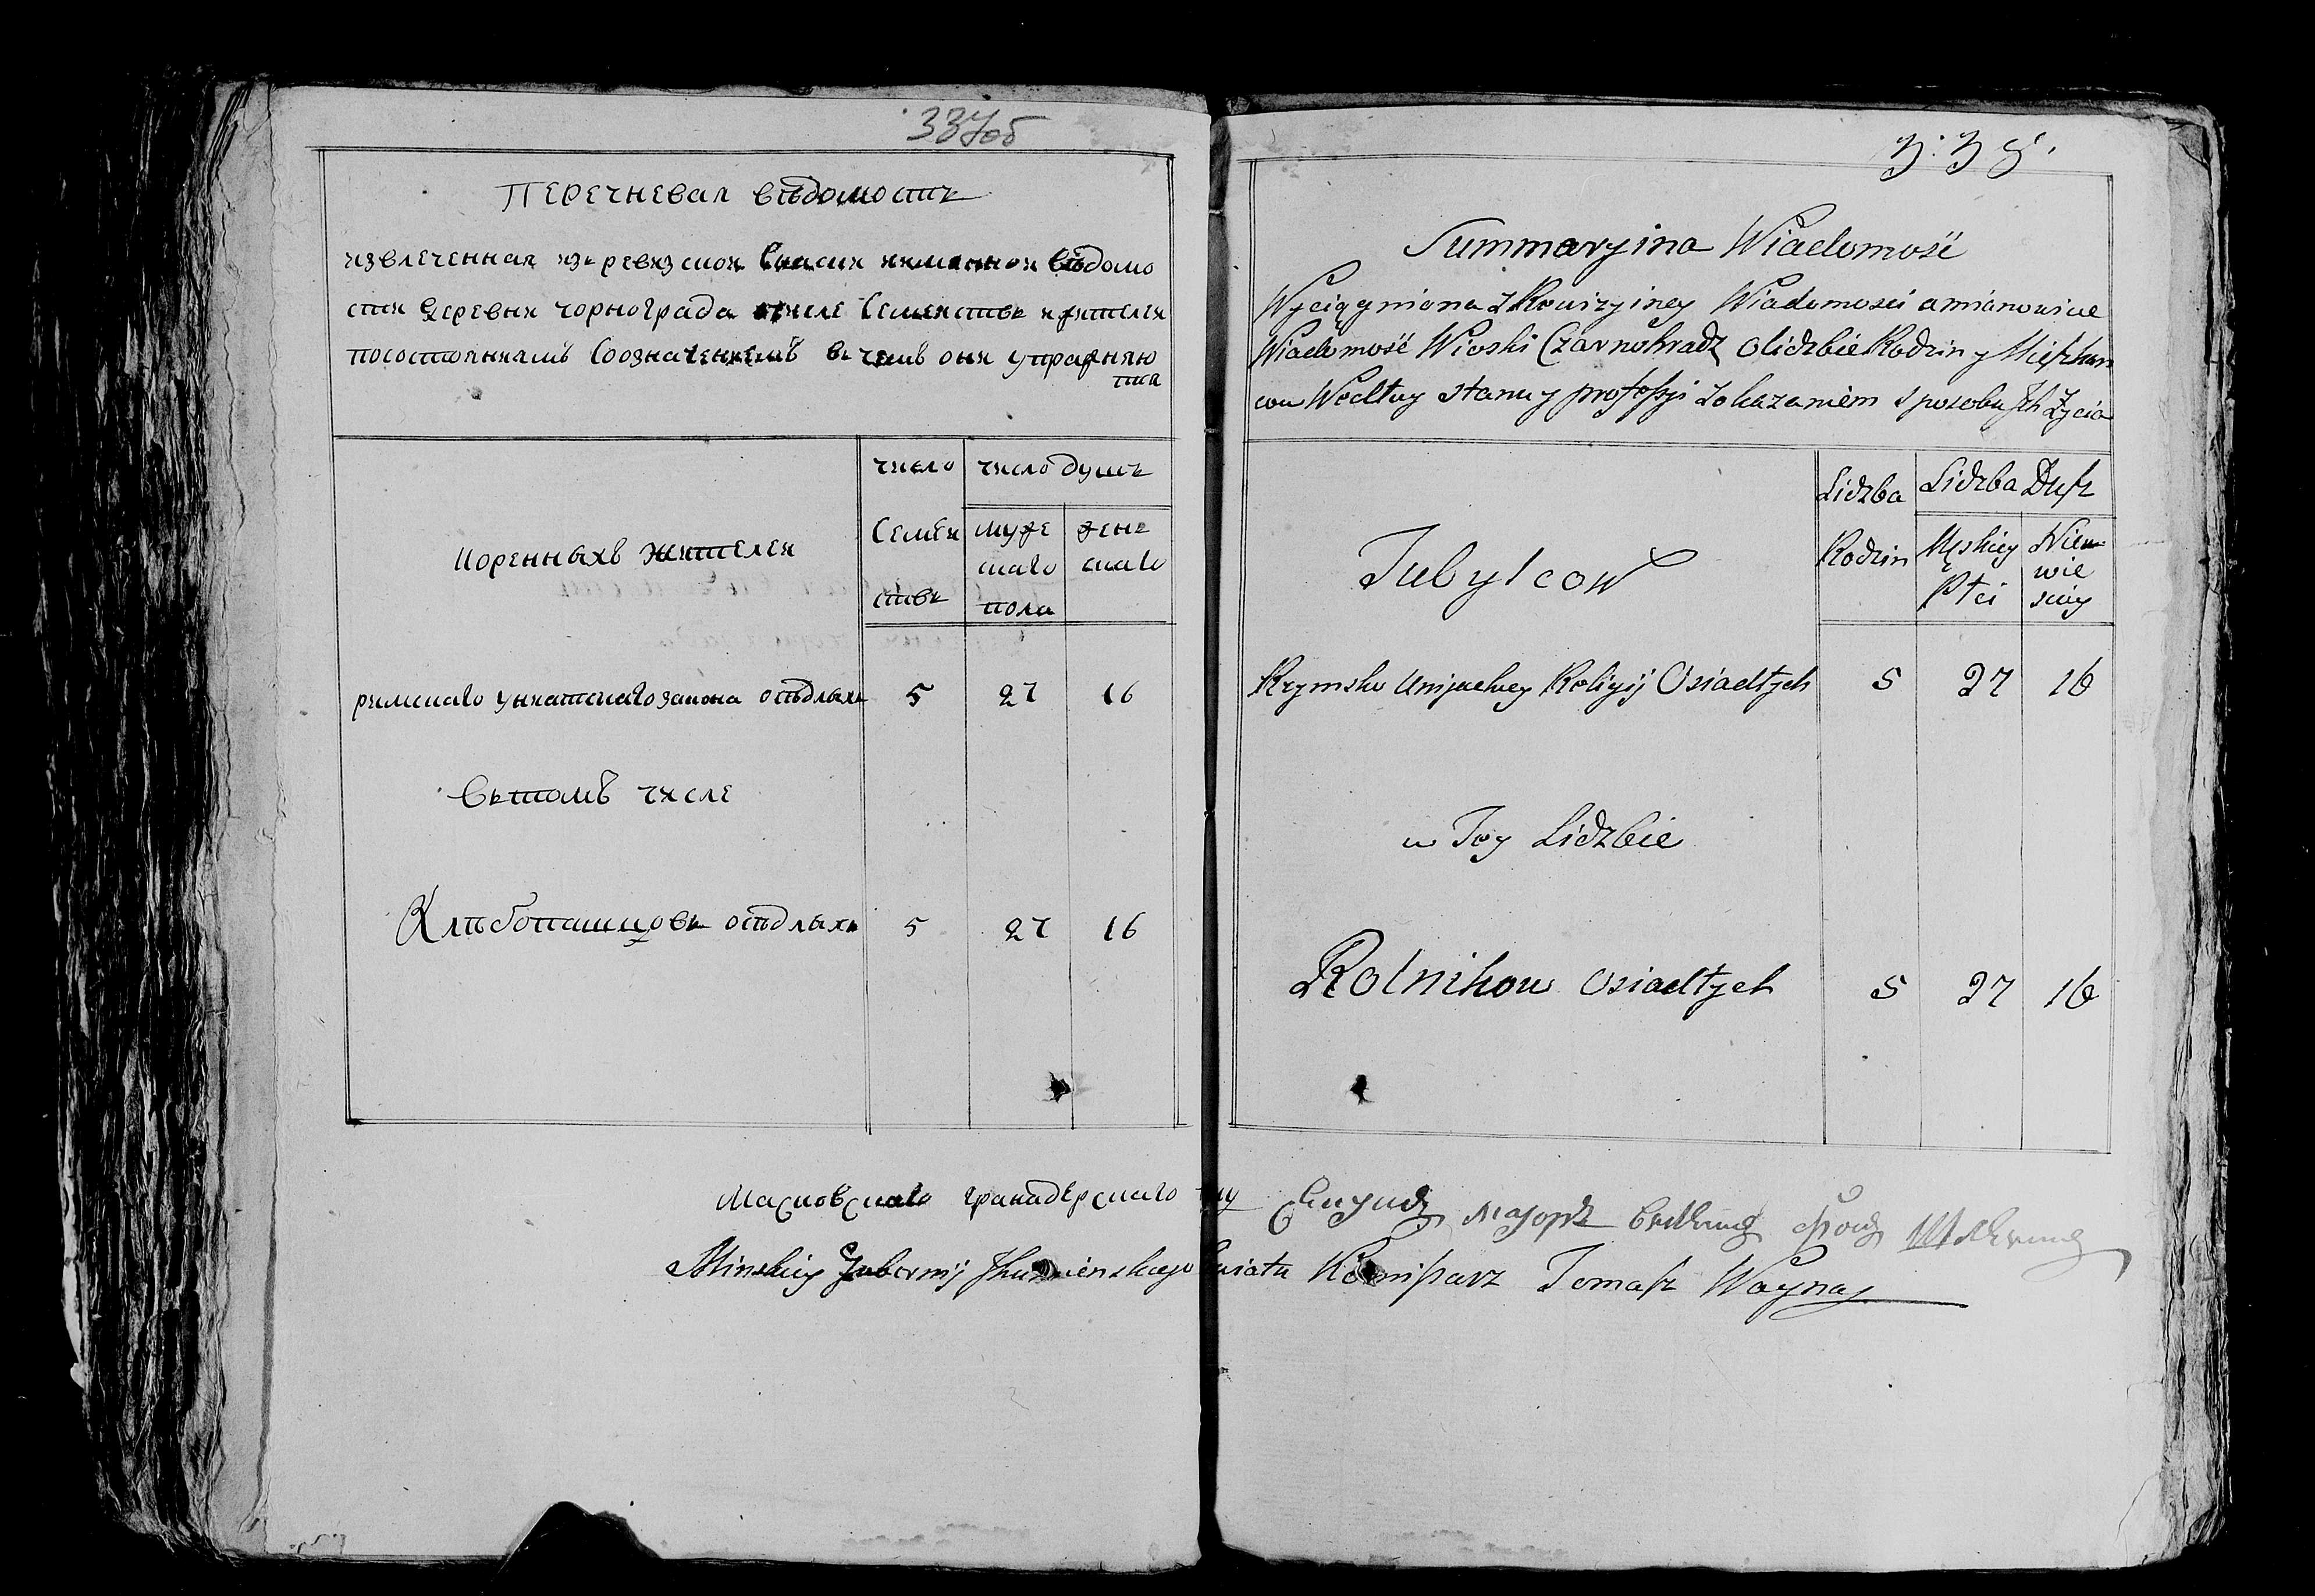 337об
Перечневая вѣдомость
извлеченная изъ ревизской Сказки именной вѣдомо
сти деревни чорнограда о числе Семействъ и жителей
посостояниямъ Соозначениемъ въ чемъ они упражняю
тса
коренныхъ жителей
число
Семей
ствъ
число душъ
муже
скаго
пола
женъ
скаго
римскаго униатскаго закона осѣдлыхъ 5 27 16
вътомъ числе
Хлѣбопашцовъ осѣдлыхъ 5 27 16
338.
Summaryina Wiadomość
Wyciągniona z Rewizyiney Wiadomosci a mianowicie
Wiadomość Wioski Czarnohradz o lidzbie Rodzin y Mieszkan
cow Wedlug stanu y professyi z okazaniem sposobu Jch Życia
Tubylcow
Lidzba
Rodzin
Lidzba Dusz
Męskiey
Płci
Niew
wie
sciey
Rzymsko Unijackiey Religij Osiadłych 5 27 16
w Tey Lidzbie
Rolnikow Osiadłych 5 27 16
Московскаго гранадерскаго Секундъ маиоръ
Minskiey Gubernij Jhumienskiego Powiatu Komisarz Tomasz Wayna